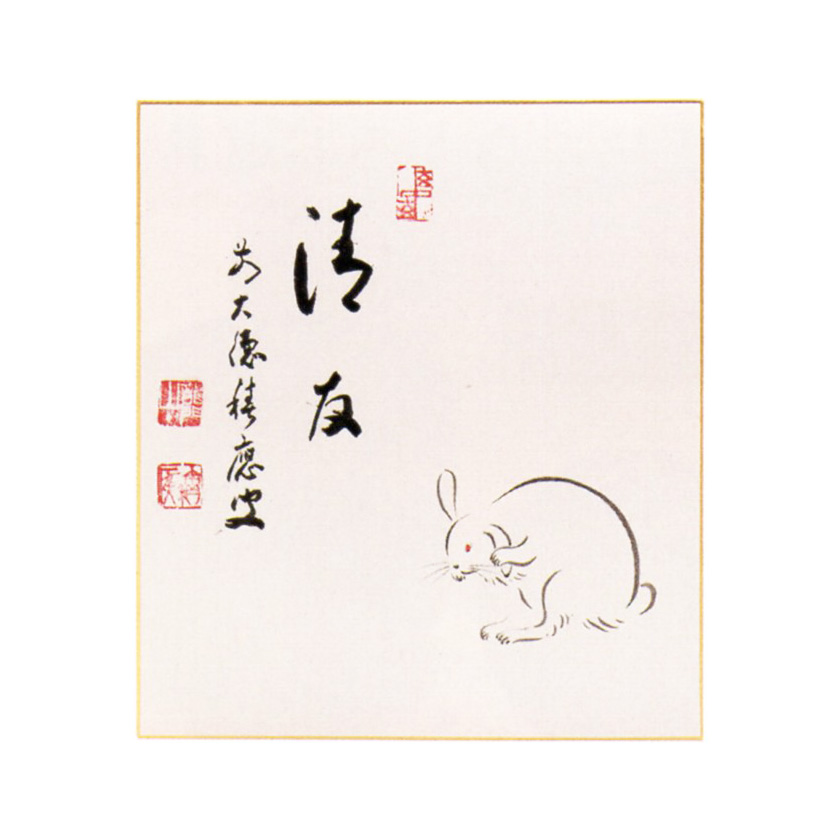 清友
前大徳積應叟